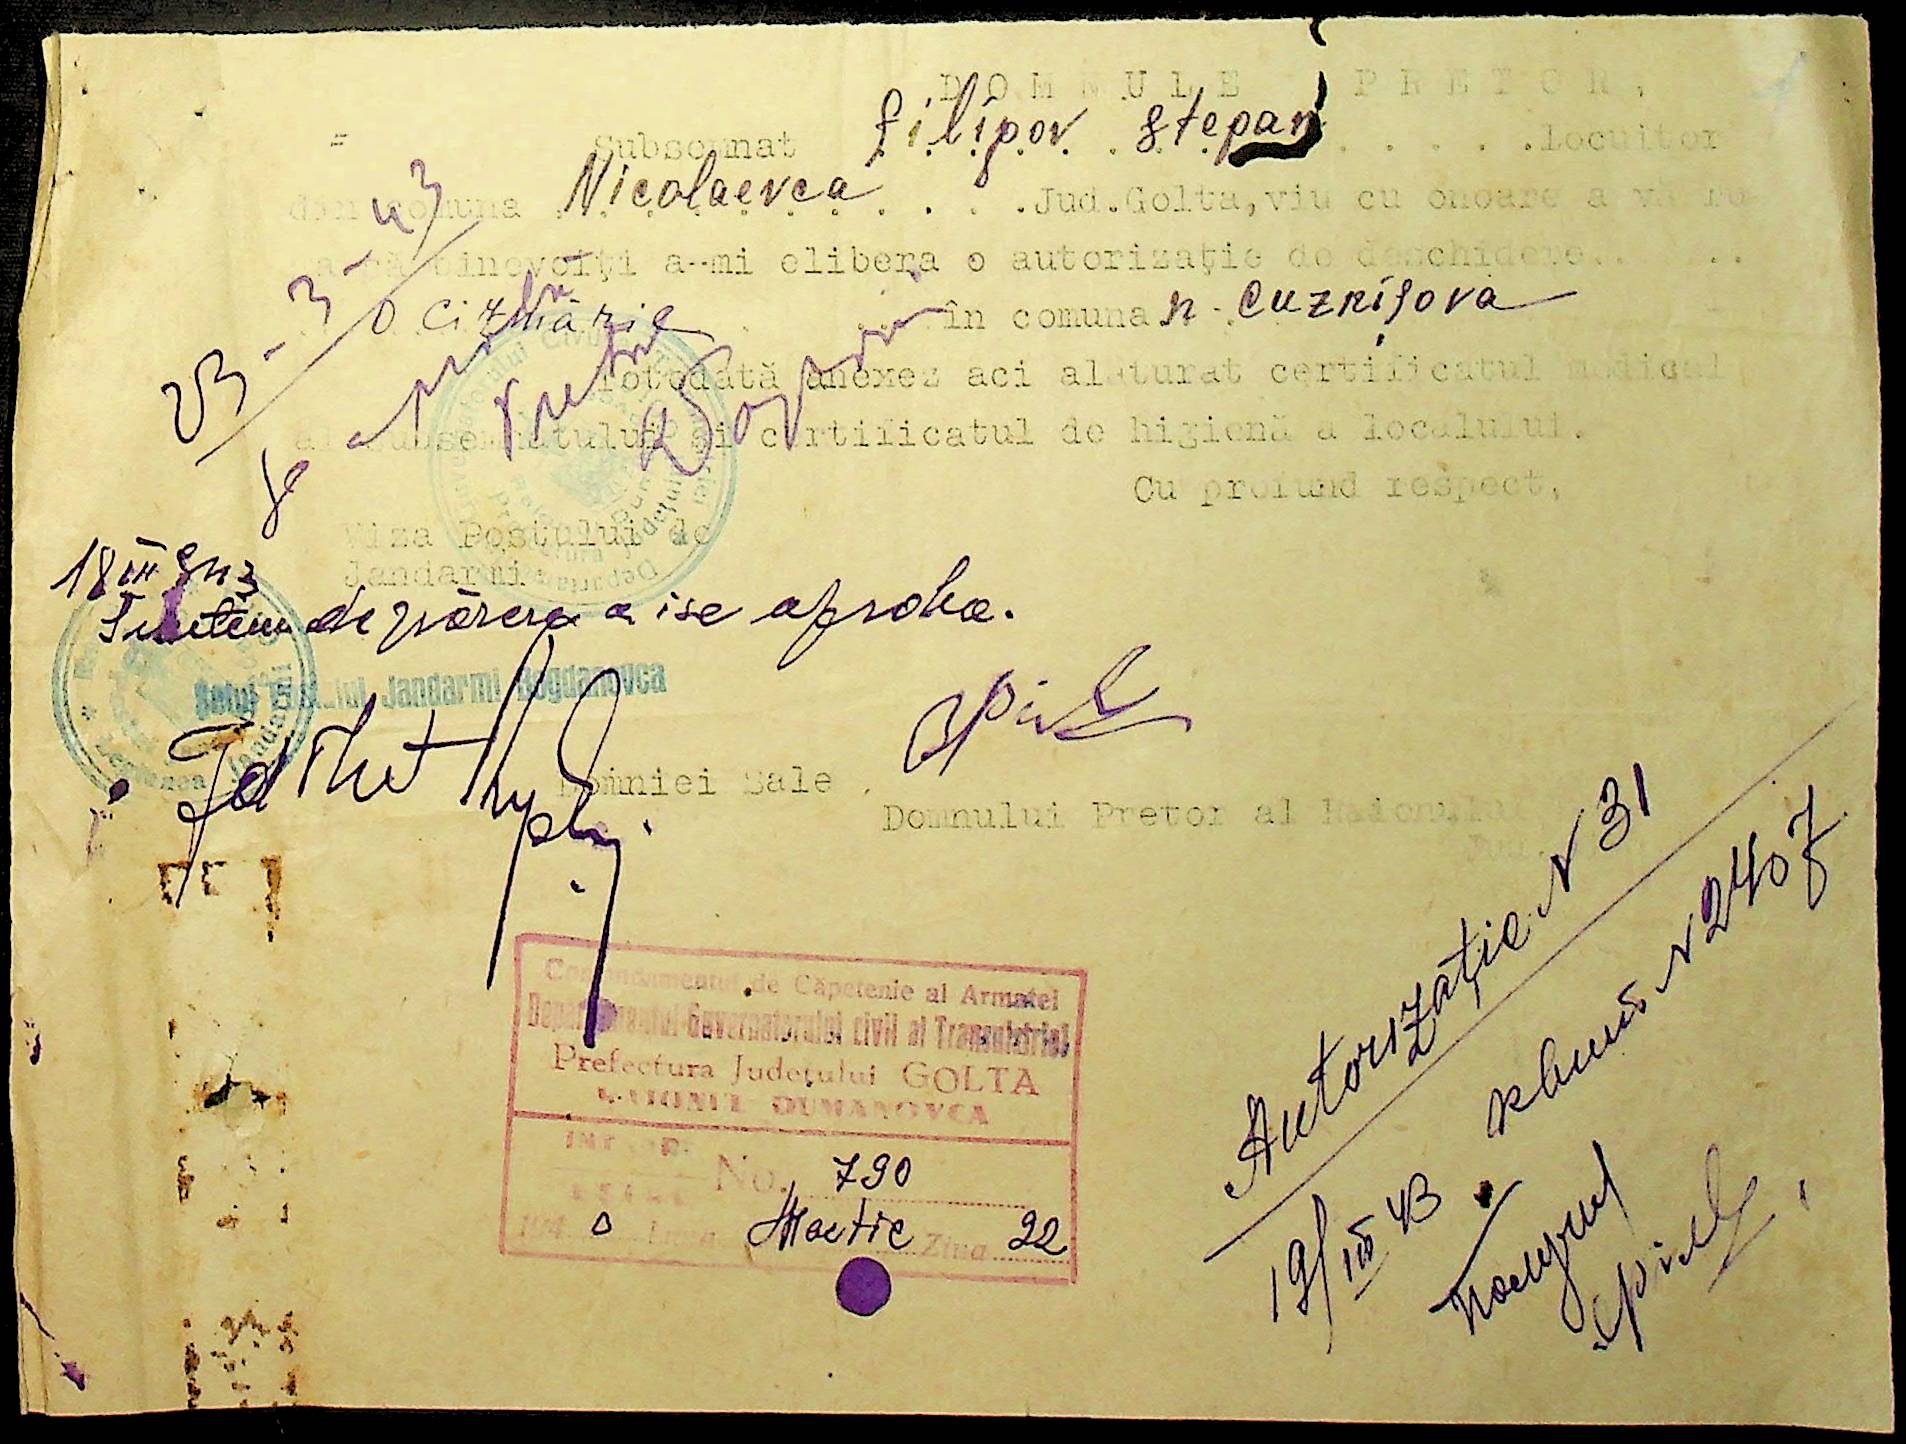 DOMNULE PRETOR,
Subsemnat filipov Stepan locuitor
din comuna Nicolaevca Jud.Golta, viu cu onoare a vă ru
binevoiți a-mi elibera o autorizație de deschidere
O Cizmărie în comuna N-Cuznițova
Totodată anexez aci alăturat certificatul medical
al subsemnatului și certificatul de higienă a localului.
Cu profund respect,
23-3-43
Se aprobă
Viza Postului de
Jandarmi
18 III 943
Suntem de părerea a i se aproba.
Șeful Postului Jandarmi Bogdanovca
Domniei Sale
Domnului Pretor al Raionului
Jud.
Comandamentul de Căpetenie al Armatei
Departamentul Guvernatorului civil al Transnistriei
Prefectura Județului GOLTA
RAIONUL DUMANOVCA
No. 790
194 Luna Martie Ziua 22
Autorizație N 31
19/III 43 N 2407
Получил